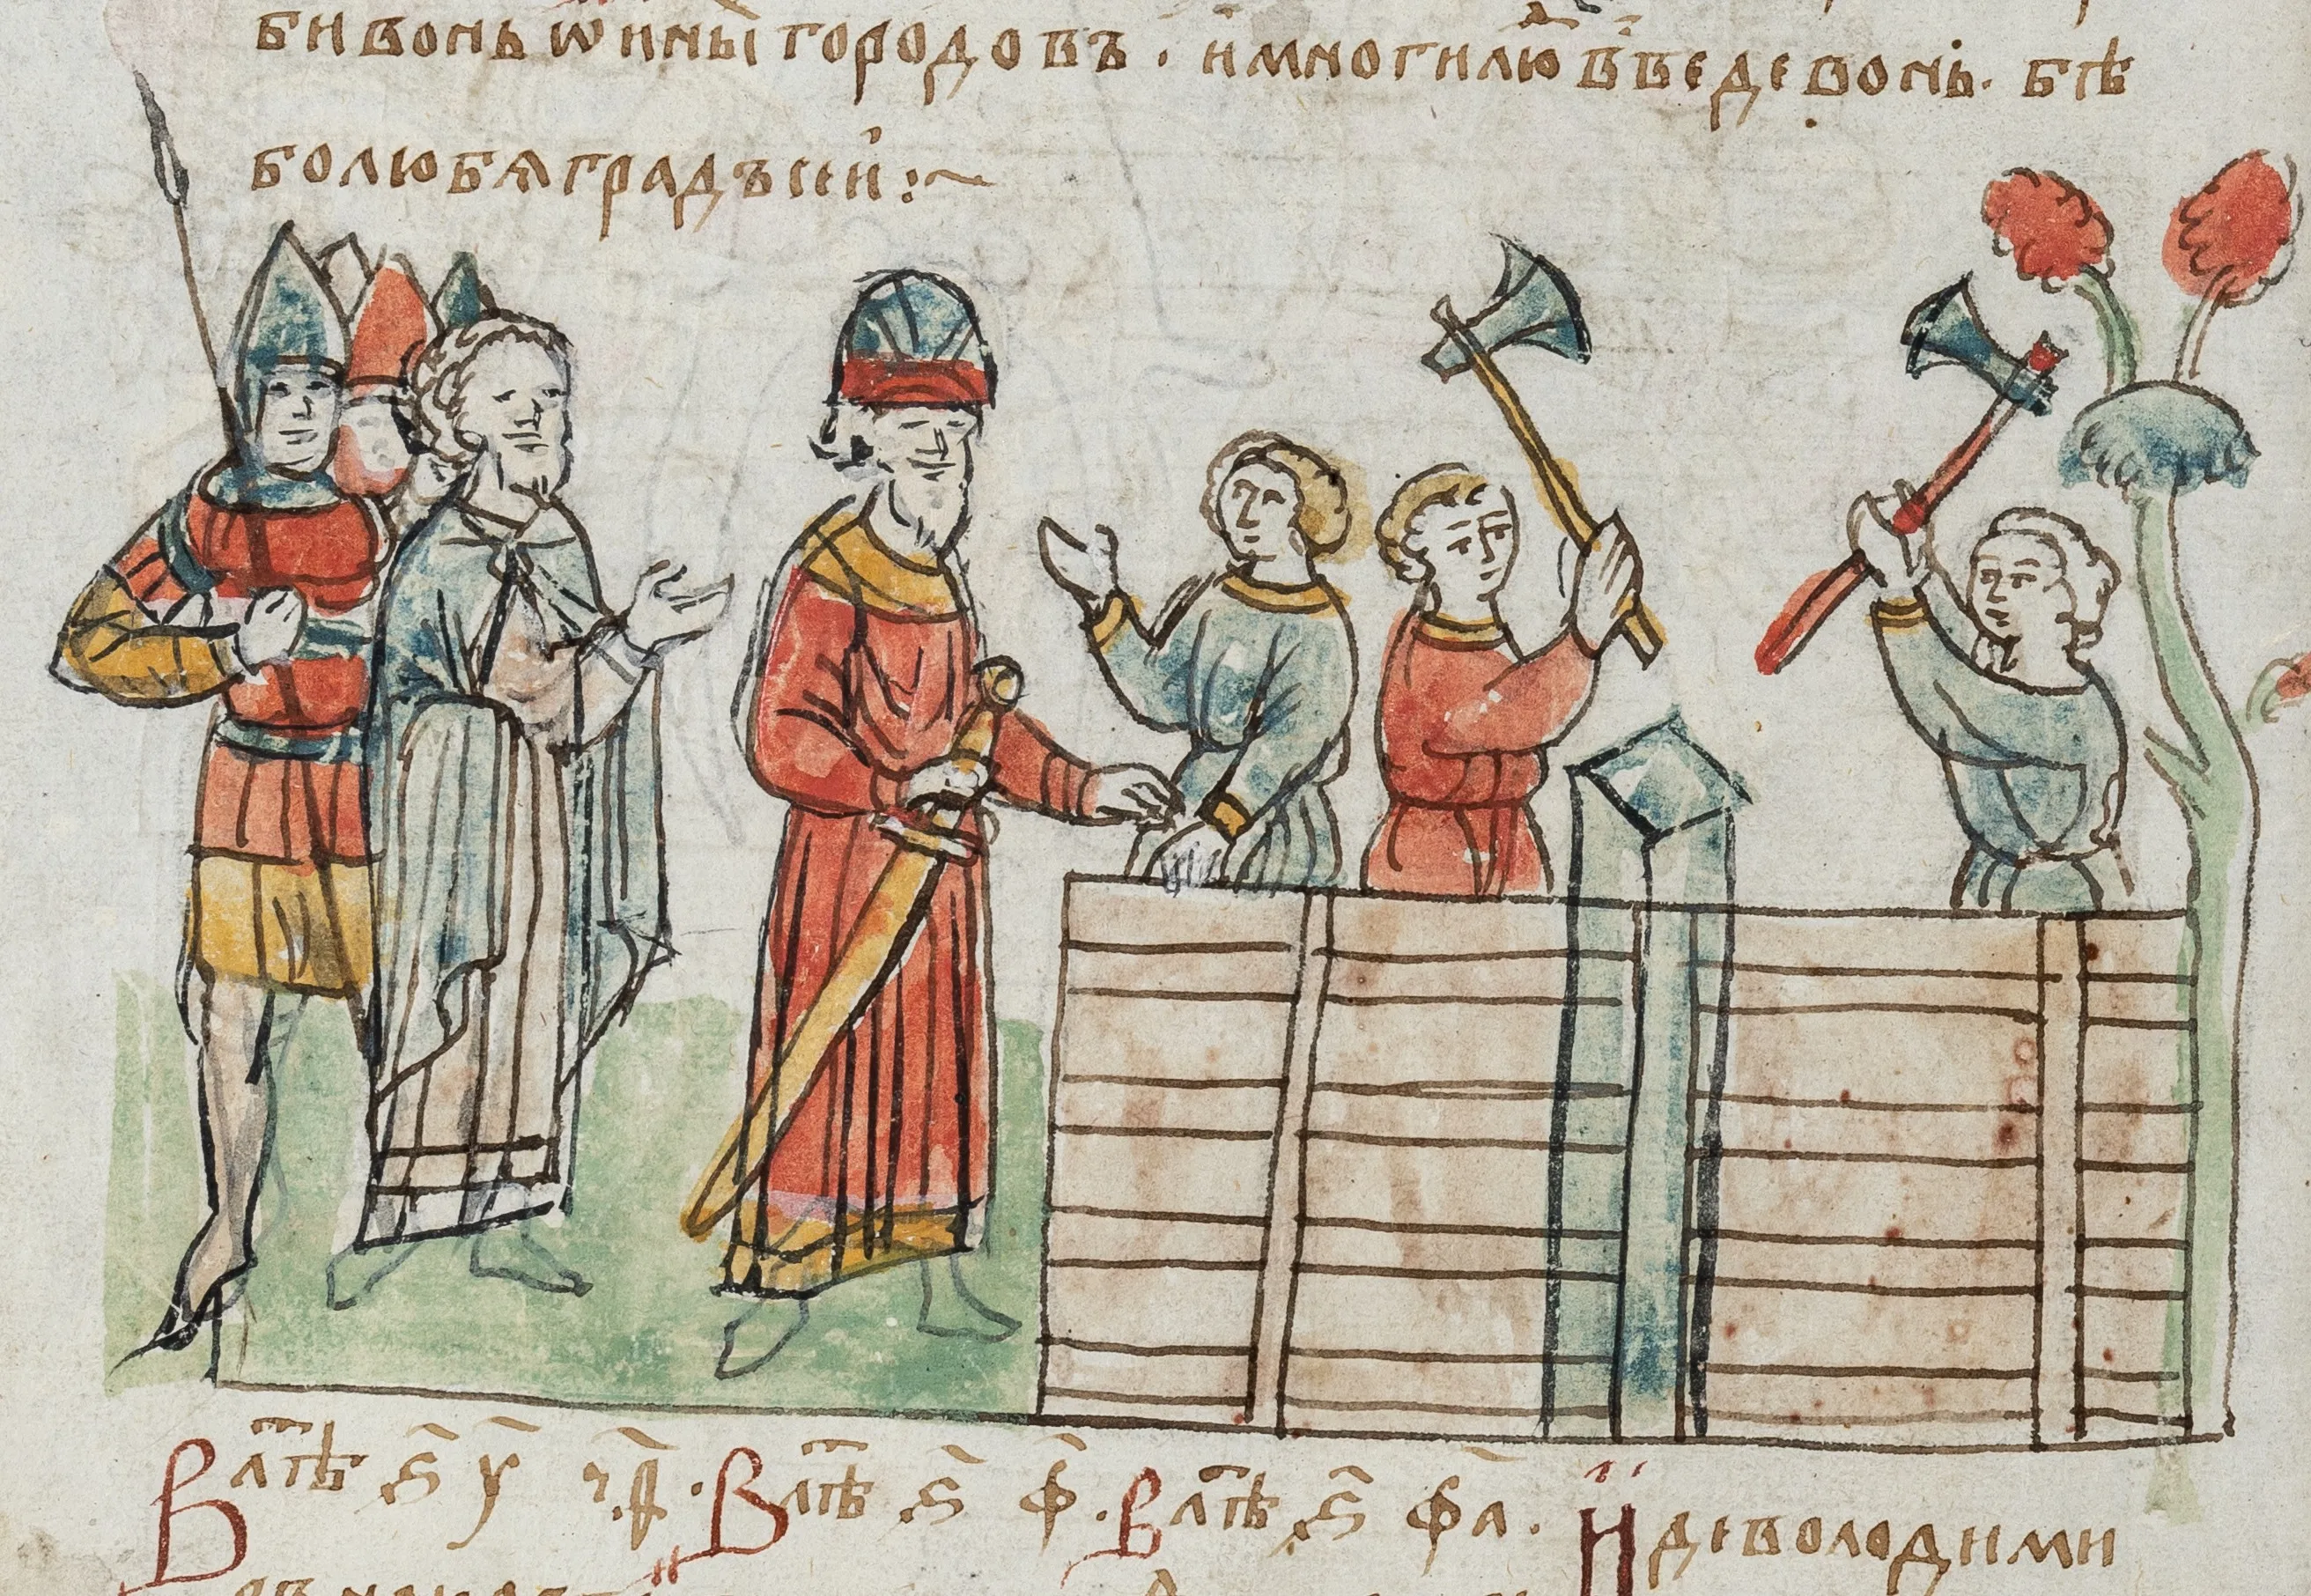 бивонь ѿ инꙑ городовъ · и многи лю҃ в̾веде вонь · бѣ
бо любѧ градъ сеи :~
В лⷮѣ ѕ҃ у҃ ч҃ѳ · В лⷮѣ ѕ҃ ф҃ · В лⷮѣ ѕ҃ фа҃ · И де володими